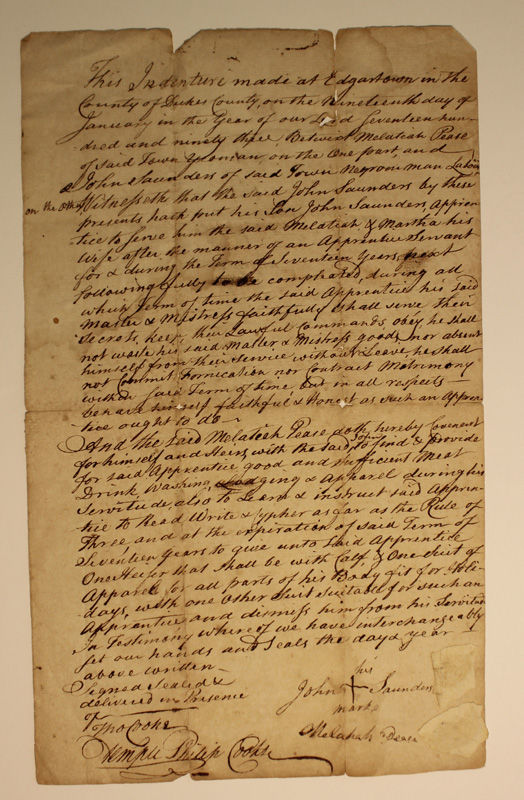 This Indenture made at Edgartown in the
County of Dukes County, on the Nineteenth day of
January in the Year of our Lord Seventeen hun-
dred and ninety three, Betwixt Melatiah Pease
of said Town Yeoman, on the One part, and
John Saunders of said Town Negroe man Labour
on the Other, Witnesseth that the said John Saunders by These
presents hath put his Son John Saunders Appren
tice to serve him the said Melatiah & Martha his
Wife after the manner of an Apprentice Servant
for & during the Term of Seventeen Years, next
following fully compleated, during all
which Term of time the said Apprentice his said
Master & Mistress faithfully shall serve Their
Secrets, keep, their Lawful Commands, obey, he shall
not waste his said Master & Mistress goods, nor absent
himself from their Service without Leave, he shall
not Commit Fornication nor Contract Matrimony
within said Term of time but in all respects
behave himself faithful & Honest as such an Appren
tice ought to do
And the said Melatiah Pease doth hereby Covenant
for himself and Heirs, with the said John to find & provide
for said Apprentice good and sufficient Meet
Drink, Washing, Lodging & Apparel during his
Servitude, also to Learn & instruct said Appren-
tice to Read Write & Cypher as far as the Rule of
Three and at the expiration of said Term of
Seventeen Years to give unto said Apprentice
One Heifer that shall be with Calf, & One suit of
Apparel for all parts of his Body fit for Holi-
days, with one Other Suit suitable for such an
Apprentice and dismiss him from his Servitude
In Testimony whereof we have interchangeably
set our hands and Seals the day & year
above written
Signed Sealed &
delivered in Presence
of
Tho Cooke
Temple Philip Cooke
his
John + Saunders
mark
Melatiah Pease